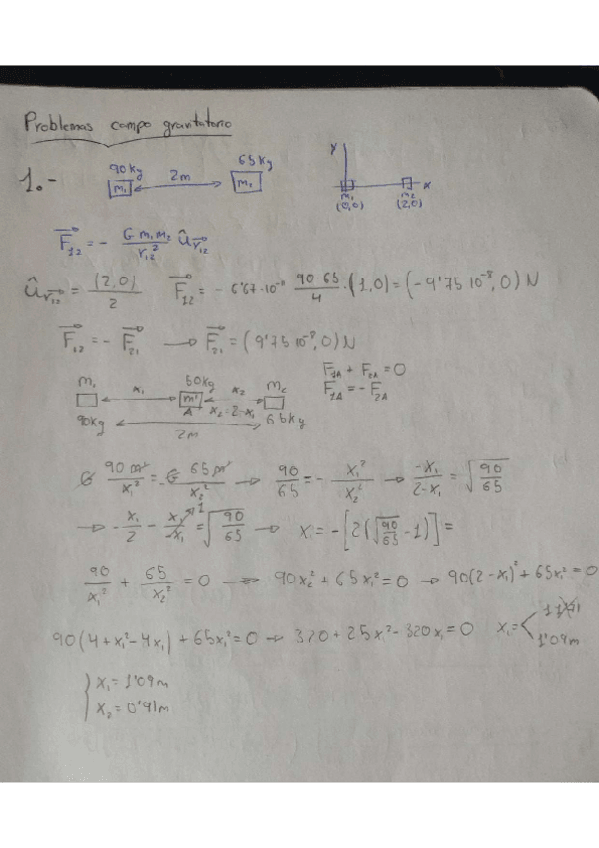 Problemas campo gravitatorio
1.- 90kg 2m 65kg
m₁ m₁
y x
m₁ m₂
(0,0) (2,0)
F₁₂ = - G m₁ m₂ / r₁₂² û r₁₂
û r₁₂ = (2,0) / 2 F₁₂ = - 6'67·10⁻¹¹ 90 65 / 4 · (1,0) = (-9'75 10⁻⁸, 0) N
F₁₂ = - F₂₁ → F₂₁ = (9'75 10⁻⁸, 0) N
m₁ x₁ 50kg x₂ m₂
m' A x₂=2-x₁
90kg 2m 65kg
F₁A + F₂A = 0
F₁A = - F₂A
G 90 m' / x₁² = - G 65 m' / x₂² → 90 / 65 = - x₁² / x₂² → -x₁ / 2-x₁ = √ 90 / 65
→ - x₁ / 2 - x₁ / -x₁ 1 = √ 90 / 65 → x₁ = - [2(√ 90 / 65 - 1)] =
90 / x₁² + 65 / x₂² = 0 → 90x₂² + 65x₁² = 0 → 90(2-x₁)² + 65x₁² = 0
90(4+x₁²-4x₁) + 65x₁² = 0 → 320 + 25x² - 320x₁ = 0 x₁ = 1'09m
x₁ = 1'09m
x₂ = 0'91m